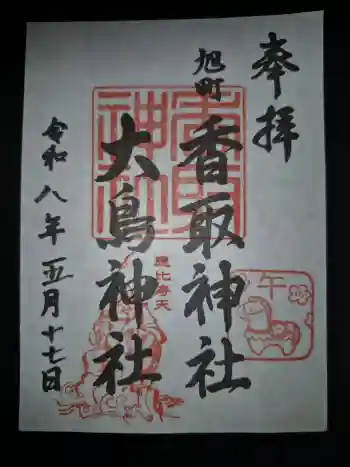 奉拝
旭町
香取神社
大鳥神社
令和八年五月十七日
恵比寿天
午